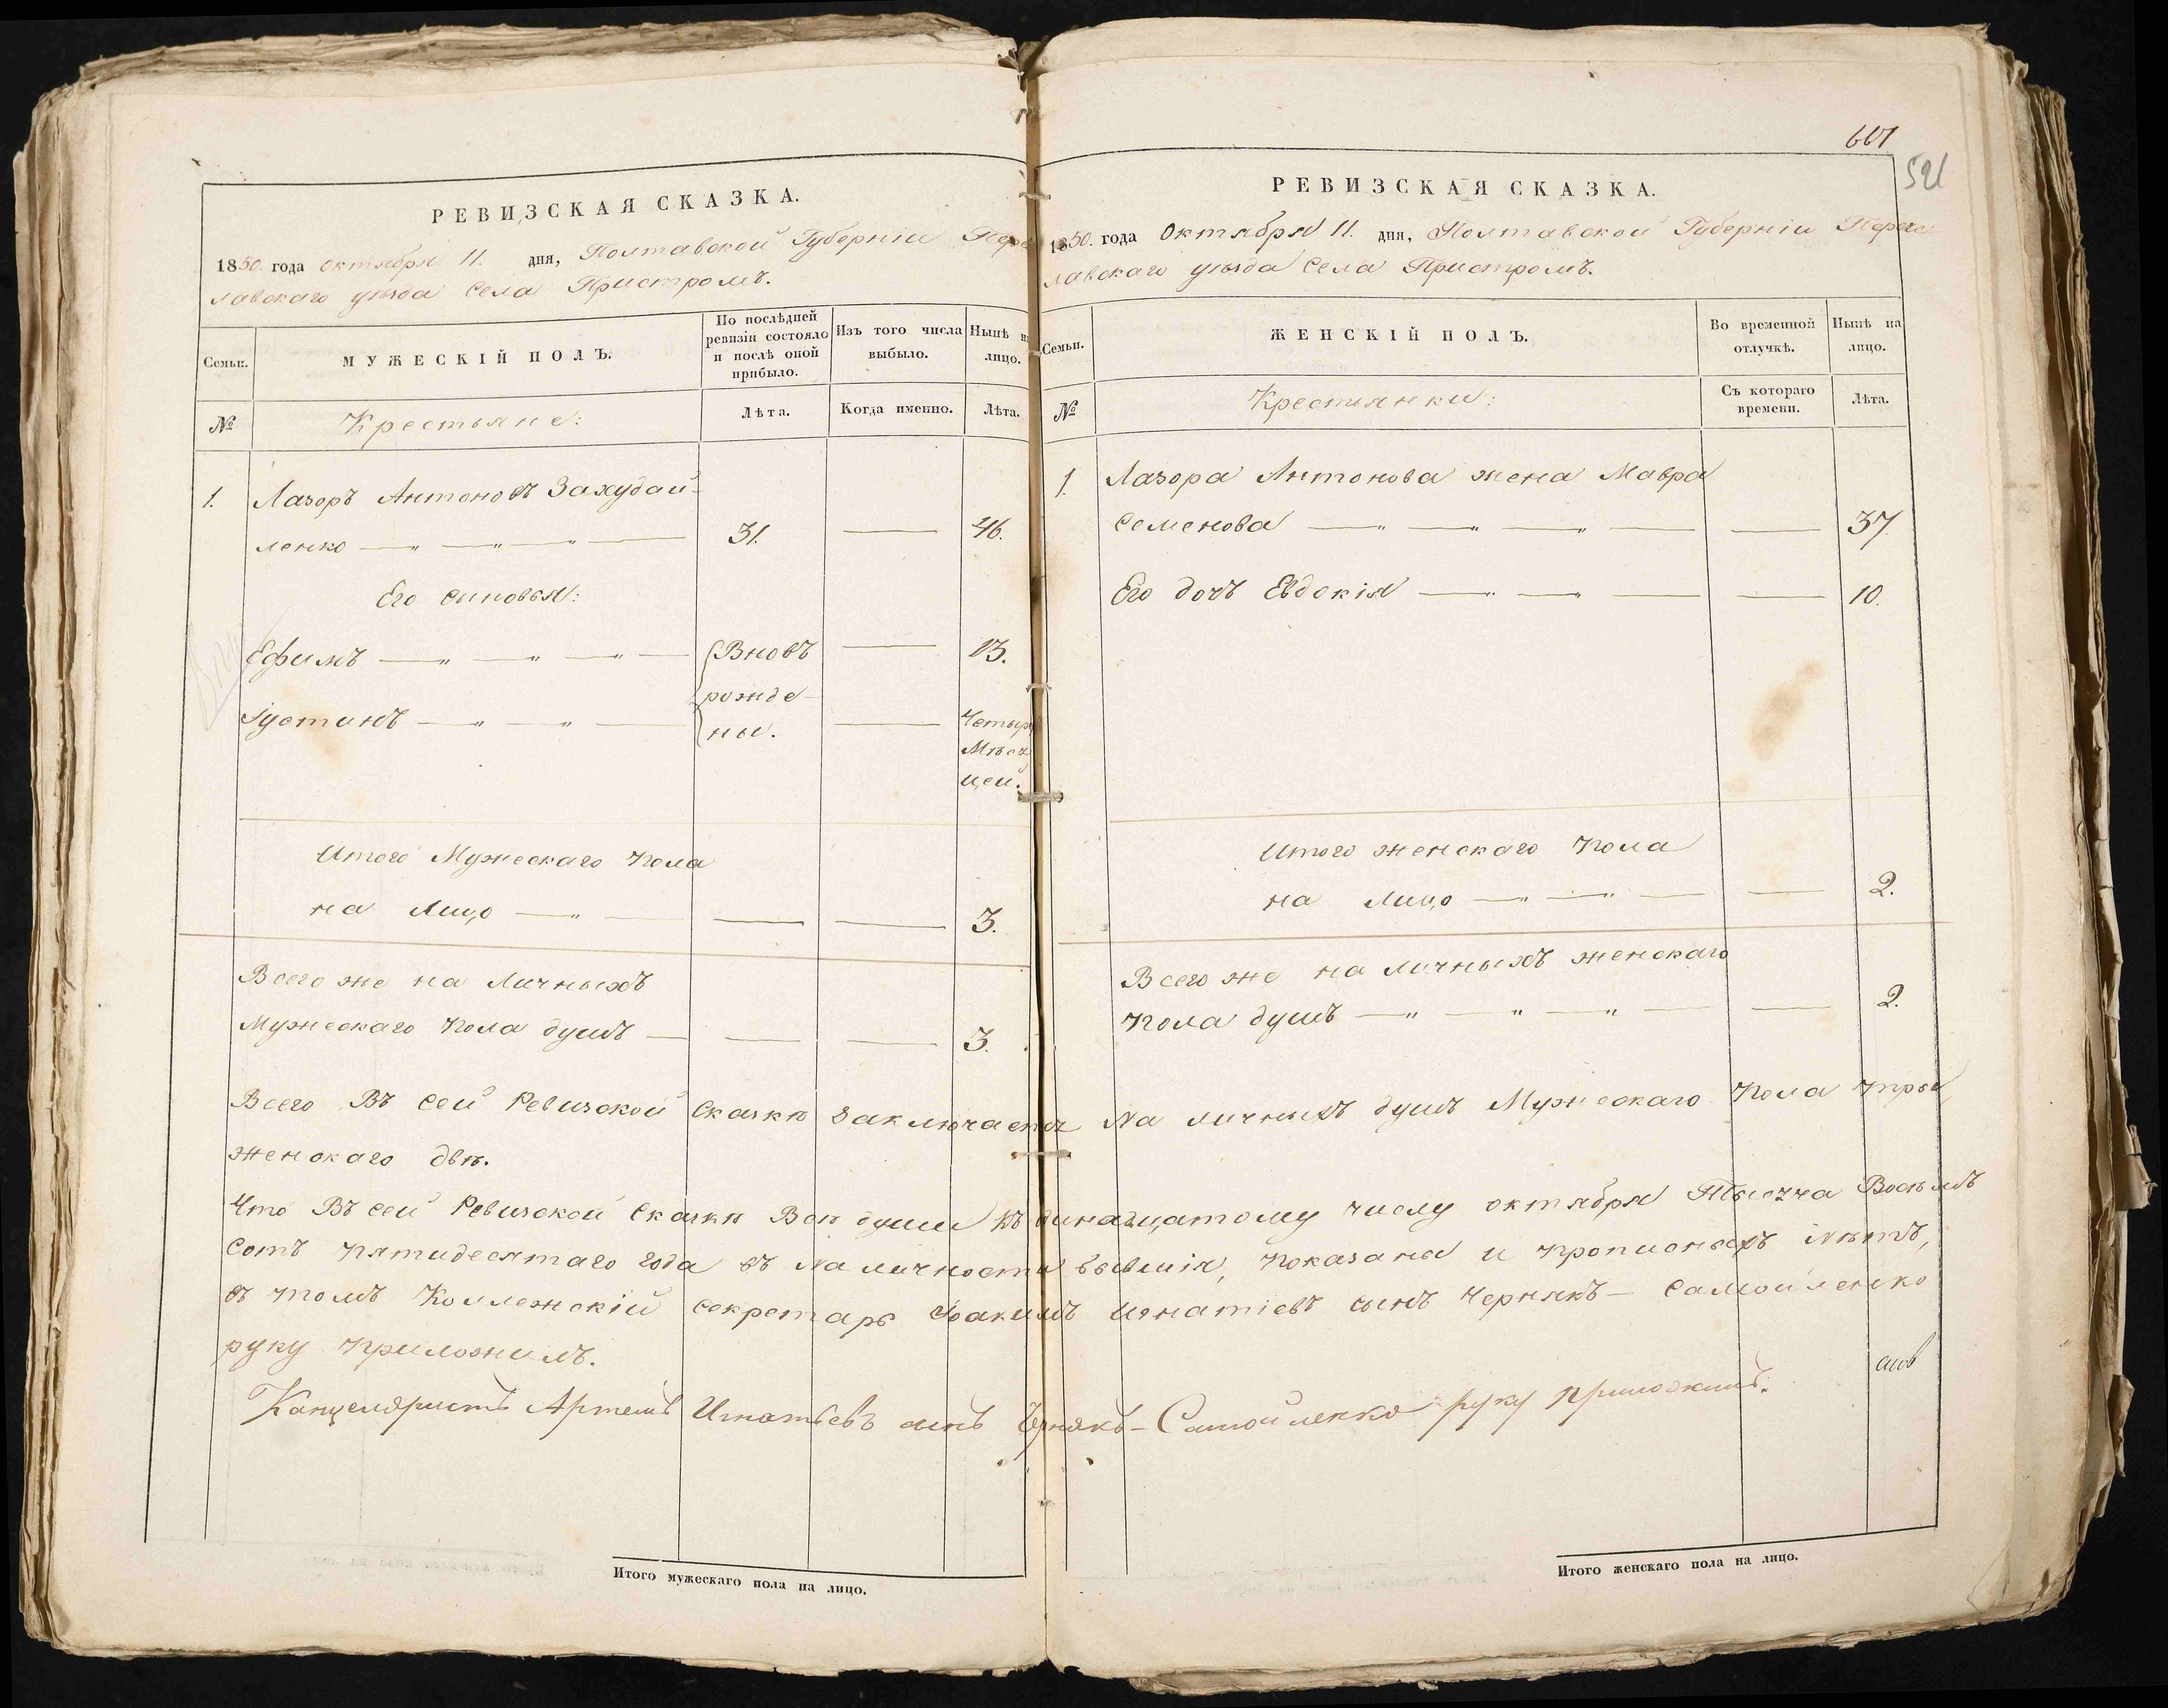 РЕВИЗСКАЯ СКАЗКА.
1850. года октября 11. дня, Полтавской Губерніи Перея
лавскаго уѣзда села Пристромъ.
Семьи.
МУЖЕСКІЙ ПОЛЪ.
По послѣдней ревизіи состояло и послѣ оной прибыло.
Изъ того числа выбыло.
Нынѣ на лицо.
№
Крестьяне:
Лѣта.
Когда именно.
Лѣта.
1. Лазоръ Антоновъ Захудай-
ленко 31. 46.
Его сыновья:
Ефимъ Вновъ 13.
рожде-
Іустинъ ны. Четыре
Мѣся
цей.
Итого Мужескаго пола
на Лицо 3.
Всего же на Личныхъ
Мужескаго пола душъ 3.
РЕВИЗСКАЯ СКАЗКА.
601
521
1850. года Октября 11. дня, Полтавской Губерніи Перея
лавскаго уѣзда села Пристромъ.
Семьи.
ЖЕНСКІЙ ПОЛЪ.
Во временной отлучкѣ.
Нынѣ на лицо.
№
Крестьянки:
Съ котораго времени.
Лѣта.
1. Лазора Антонова жена Мавра
Семенова 37.
Его дочъ Евдокія 10.
Итого женскаго пола
на Лицо 2.
Всего же на личныхъ женскаго
пола душъ 2.
Всего Въ сей Ревизской Сказкѣ Заключается На личныхъ душъ Мужескаго пола три
женскаго двѣ.
Что Въ сей Ревизской Сказкѣ Всѣ души къ динадцатому числу октября Тысяча Восѣмъ
сотъ пятидесятаго года въ На личности бывшія, показаны и прописныхъ нѣтъ,
въ томъ Коллежскій секретарь Іоакимъ Игнатіевъ сынъ Чернякъ- Самойленко
руку приложилъ.
Канцеляристъ Артемъ Игнатьевъ сынъ Чернякъ-Самойленко руку приложилъ.
Итого мужескаго пола на лицо.
Итого женскаго пола на лицо.